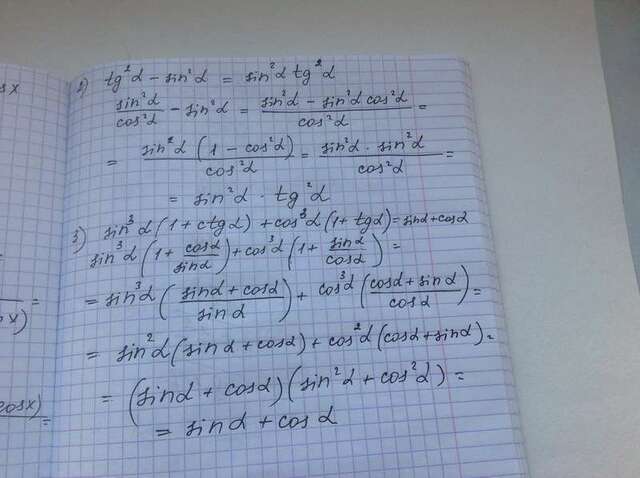 2) tg²α − sin²α = sin²α tg²α
sin²α/cos²α − sin²α = (sin²α − sin²α cos²α)/cos²α =
= sin²α (1 − cos²α)/cos²α = sin²α · sin²α/cos²α =
= sin²α · tg²α
3) sin³α (1 + ctgα) + cos³α (1 + tgα) = sinα + cosα
sin³α (1 + cosα/sinα) + cos³α (1 + sinα/cosα) =
= sin³α ((sinα + cosα)/sinα) + cos³α ((cosα + sinα)/cosα) =
= sin²α (sinα + cosα) + cos²α (cosα + sinα) =
= (sinα + cosα)(sin²α + cos²α) =
= sinα + cosα